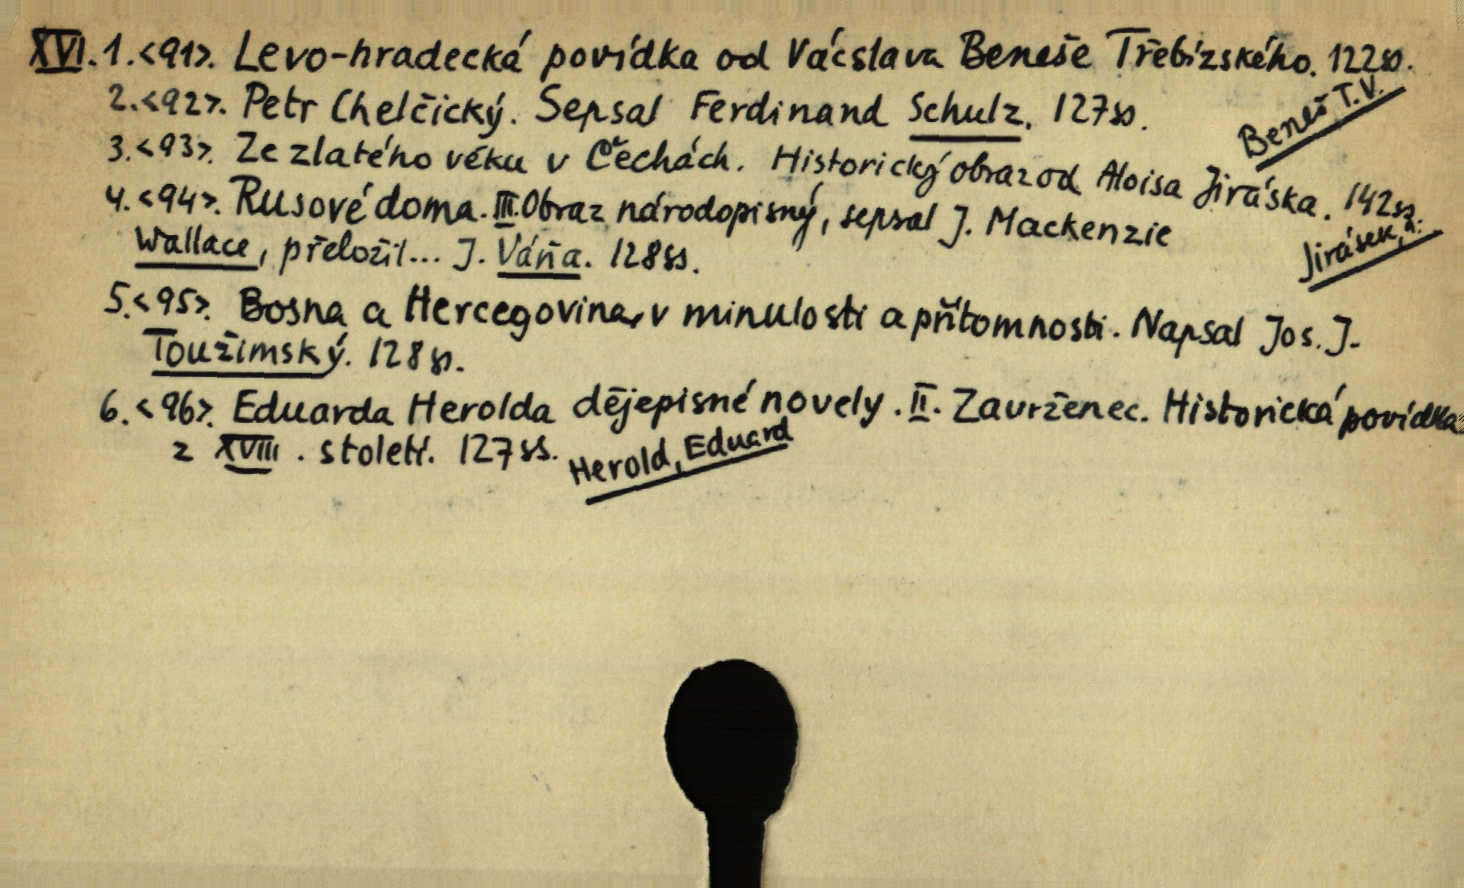 XVI. 1. <91>. Levo-hradecká povídka od Vácslava Beneše Třebízského. 122ss.
2. <92>. Petr Chelčický. Sepsal Ferdinand Schulz. 127ss.
Beneš T.V.
3. <93>. Ze zlatého věku v Čechách. Historický obraz od Aloisa Jiráska. 142ss.
Jirásek, A.
4. <94>. Rusové doma. III. Obraz národopisný, sepsal J. Mackenzie
Wallace, přeložil... J. Váňa. 128ss.
5. <95>. Bosna a Hercegovina v minulosti a přítomnosti. Napsal Jos. J.
Toužimský. 128ss.
6. <96>. Eduarda Herolda dějepisné novely. II. Zavrženec. Historická povídka
z XVIII. století. 127ss.
Herold, Eduard